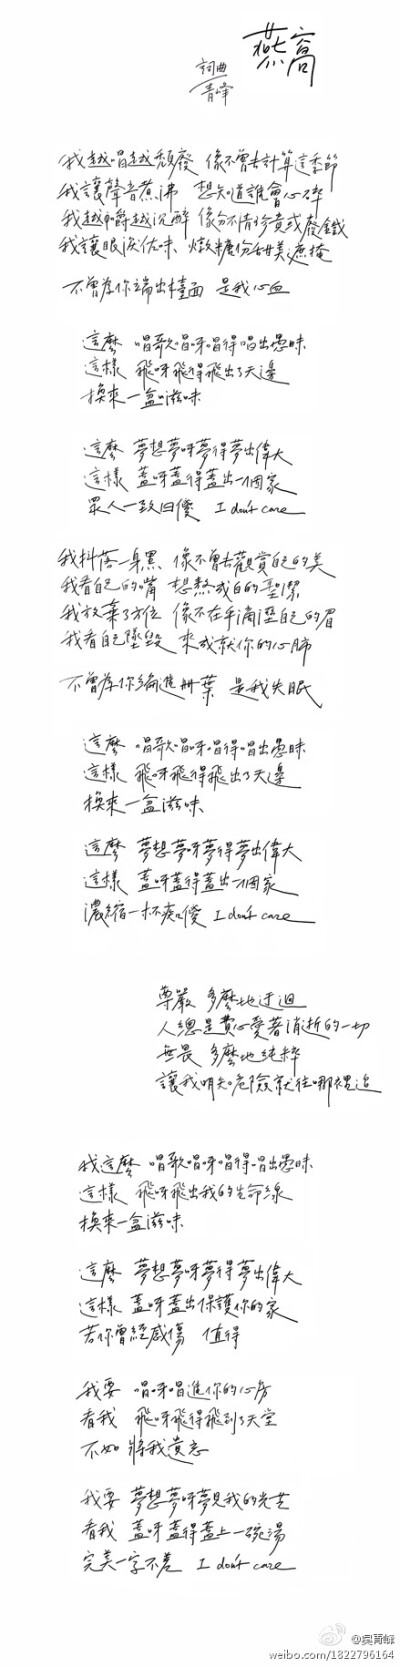 燕窩
詞曲
青峰
我越唱越頹廢 像不曾去計算這季節
我讓聲音煮沸 想知道誰會心碎
我越嚼越沉醉 像分不清珍貴或廢鐵
我讓眼淚佐味 燉糖份甜美遮掩
不曾為你端出檯面 是我心血
這麼 唱歌唱呀唱得唱出愚昧
這樣 飛呀飛得飛出了天邊
換來一盒滋味
這麼 夢想夢呀夢得夢出偉大
這樣 蓋呀蓋得蓋出一個家
眾人一致口傻 I don't care
我抖落一身黑 像不曾去觀賞自己的美
我看自己的嘴 想熬成白的聖潔
我放棄了方位 像不在乎滴溼自己的眉
我看自己墜毀 來成就你的心肺
不曾為你編進冊葉 是我失眠
這麼 唱歌唱呀唱得唱出愚昧
這樣 飛呀飛得飛出了天邊
換來一盒滋味
這麼 夢想夢呀夢得夢出偉大
這樣 蓋呀蓋得蓋出一個家
濃縮一杯痴傻 I don't care
尊嚴 多麼地迂迴
人總是費心愛著消逝的一切
無畏 多麼地純粹
讓我明知危險就往哪裡追
我這麼 唱歌唱呀唱得唱出愚昧
這樣 飛呀飛出我的生命線
換來一盒滋味
這麼 夢想夢呀夢得夢出偉大
這樣 蓋呀蓋出保護你的家
若你曾經感傷 值得
我要 唱呀唱進你的心房
看我 飛呀飛得飛到了天堂
不如將我遺忘
我要 夢想夢呀夢見我的光芒
看我 蓋呀蓋得蓋上一碗湯
完美一字不差 I don't care
@吳青峰
weibo.com/1822796164